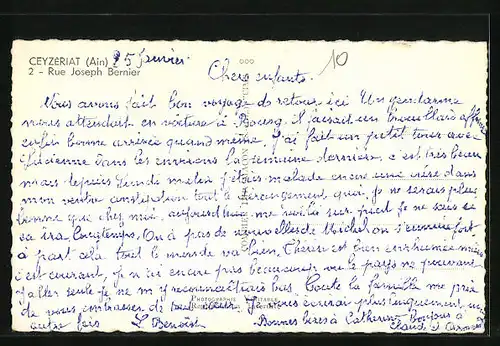 CEYZÉRIAT (Ain) 25 Janvier
2 - Rue Joseph Bernier
10
Chers enfants.
Nous avons fait bon voyage de retour, ici Un gendarme
nous attendait en voiture à Bourg. Il faisait un brouillard affreux
enfin bonne arrivée quand même. J'ai fait un petit tour avec
Lucienne dans les environs la semaine dernière, c'est très beau
mais depuis Lundi matin j'étais malade encore une crise dans
mon ventre constipation tout le dérangement quoi, Je ne serais plus
bonne que chez moi, aujourd'hui me voilà sur pied Je ne sais si
ça ira longtemps. On a pas de nouvelles de Michel on s'ennuie fort
à part cela tout le monde va bien. Thérèse est bien enrhumée mais
c'est courant, je n'ai encore pas beaucoup vu le pays ne pouvant
aller seule je ne m'y reconnaîtrais pas. Toute la famille me prie
de vous embrasser de tout cœur. Je vous écrirai plus longuement une
autre fois L. Benoist Bonnes bises à Catherine Bonjour à
Claude et
PHOTOGRAPHIE VÉRITABLE